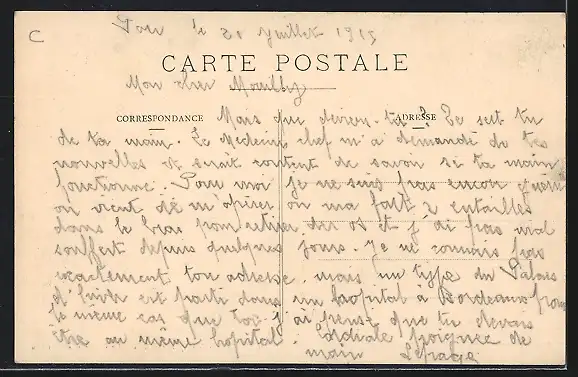 C
Pau le 31 Juillet 1915
CARTE POSTALE
Mon cher Mouilhy
CORRESPONDANCE
ADRESSE
Mais que deviens-tu ? Ce sert tu
de ta main. Le Médecin chef m'a demandé de tes
nouvelles et serait content de savoir si ta main
fonctionne. Pour moi je ne suis pas encore guéri
on vient de m'opérer on ma fait 2 entailles
dans le bras pour retirer des os et j'ai pas mal
souffert depuis quelques jours. Je ne connais pas
exactement ton adresse. mais un type du Palais
d'hiver est parti dans un hopital à Bordeaux pour
le même cas que toi j'ai pensé que tu devais
être au même hopital. Cordiale poignée de
main Lepage